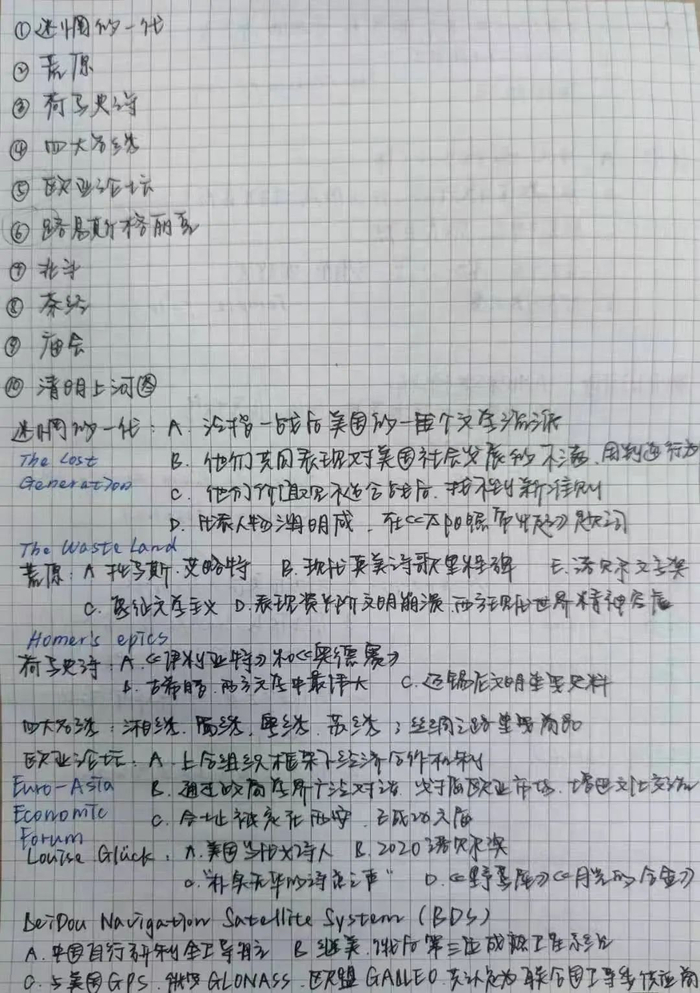 ① 迷惘的一代
② 荒原
③ 荷马史诗
④ 四大名绣
⑤ 欧亚论坛
⑥ 路易斯格丽克
⑦ 北斗
⑧ 茶经
⑨ 庙会
⑩ 清明上河图
迷惘的一代：A. 泛指一战后美国的一个文学流派
The Lost B. 他们共同表现对美国社会发展的不满
Generation C. 他们价值取不适合战后，找不到新准则
D. 代表人物海明威，在《太阳照常升起》题词
The Waste Land
荒原：A 托马斯·艾略特 B. 现代英美诗歌里程碑 E. 诺贝尔文学奖
C. 象征文学主义 D. 表现资本阶文明崩溃，西方现代世界精神
Homer's epics
荷马史诗：A.《伊利亚特》和《奥德赛》
B. 古希腊，西方文学中最伟大 C. 迈锡尼文明重要史料
四大名绣：湘绣，蜀绣，粤绣，苏绣；丝绸之路重要商品
欧亚论坛：A. 上合组织框架下经济合作机制
Euro-Asia B. 通过政商学界广泛对话，欧亚市场，文化交流
Economic C. 会址被定在西安，已成功六届
Forum
Louise Glück, A. 美国当代女诗人 B. 2020诺尔奖
C. "朴实无华的诗意之声" D.《野鸢尾》《月光的合金》
BeiDou Navigation Satellite System (BDS)
A. 中国自行研制全卫导航 B 继美、俄后第三位成熟卫星系统
C. 与美国GPS、俄罗GLONASS、欧盟GALILEO，共认定为联合国卫导供应商